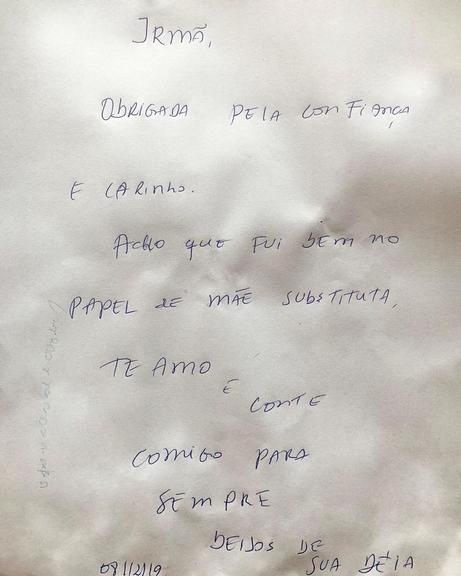 IRMÃ,
OBRIGADA PELA CONFIANÇA
E CARINHO.
ACHO QUE FUI BEM NO
PAPEL DE MÃE SUBSTITUTA,
TE AMO
E
CONTE
COMIGO PARA
SEMPRE
BEIJOS DE
SUA DÉIA
08/12/19